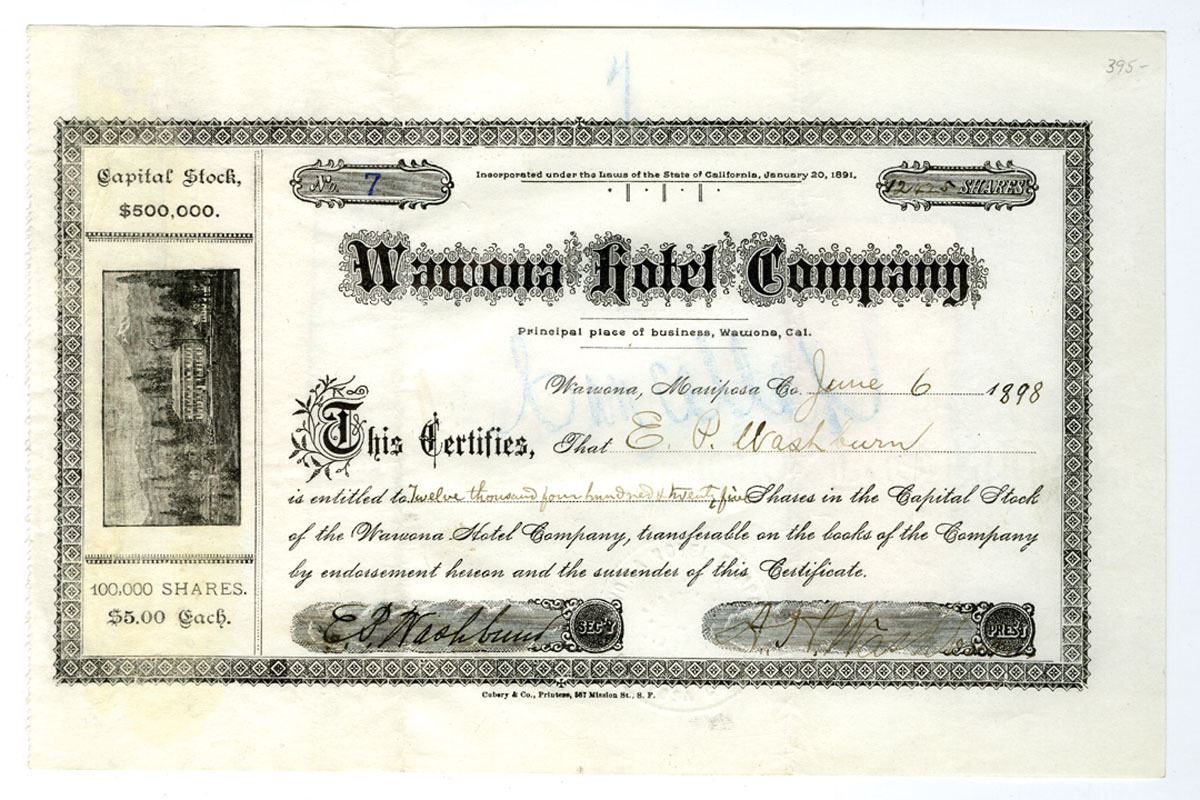 395-
Capital Stock,
$500,000.
100,000 SHARES.
$5.00 Each.
No. 7
Incorporated under the Laws of the State of California, January 20, 1891.
12425 SHARES
Wawona Hotel Company
Principal place of business, Wawona, Cal.
Wawona, Mariposa Co. June 6 1898
This Certifies, That E. P. Washburn
is entitled to Twelve thousand four hundred & twenty five Shares in the Capital Stock
of the Wawona Hotel Company, transferable on the books of the Company
by endorsement hereon and the surrender of this Certificate.
E. P. Washburn SEC'Y
PRES'T
Cubery & Co., Printers, 587 Mission St., S. F.